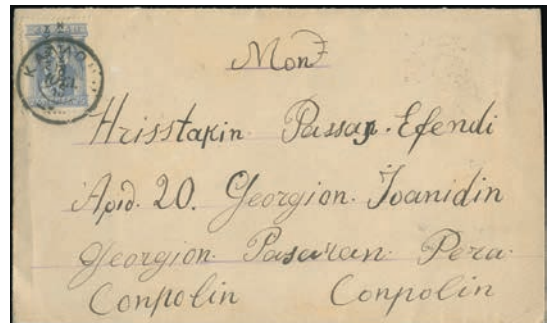 Mon
Hrisstakin. Passaz. Efendi
Αριθ. 20. Georgion. Ioanidin
Georgion. Pasaran. Pera.
Conpolin Conpolin